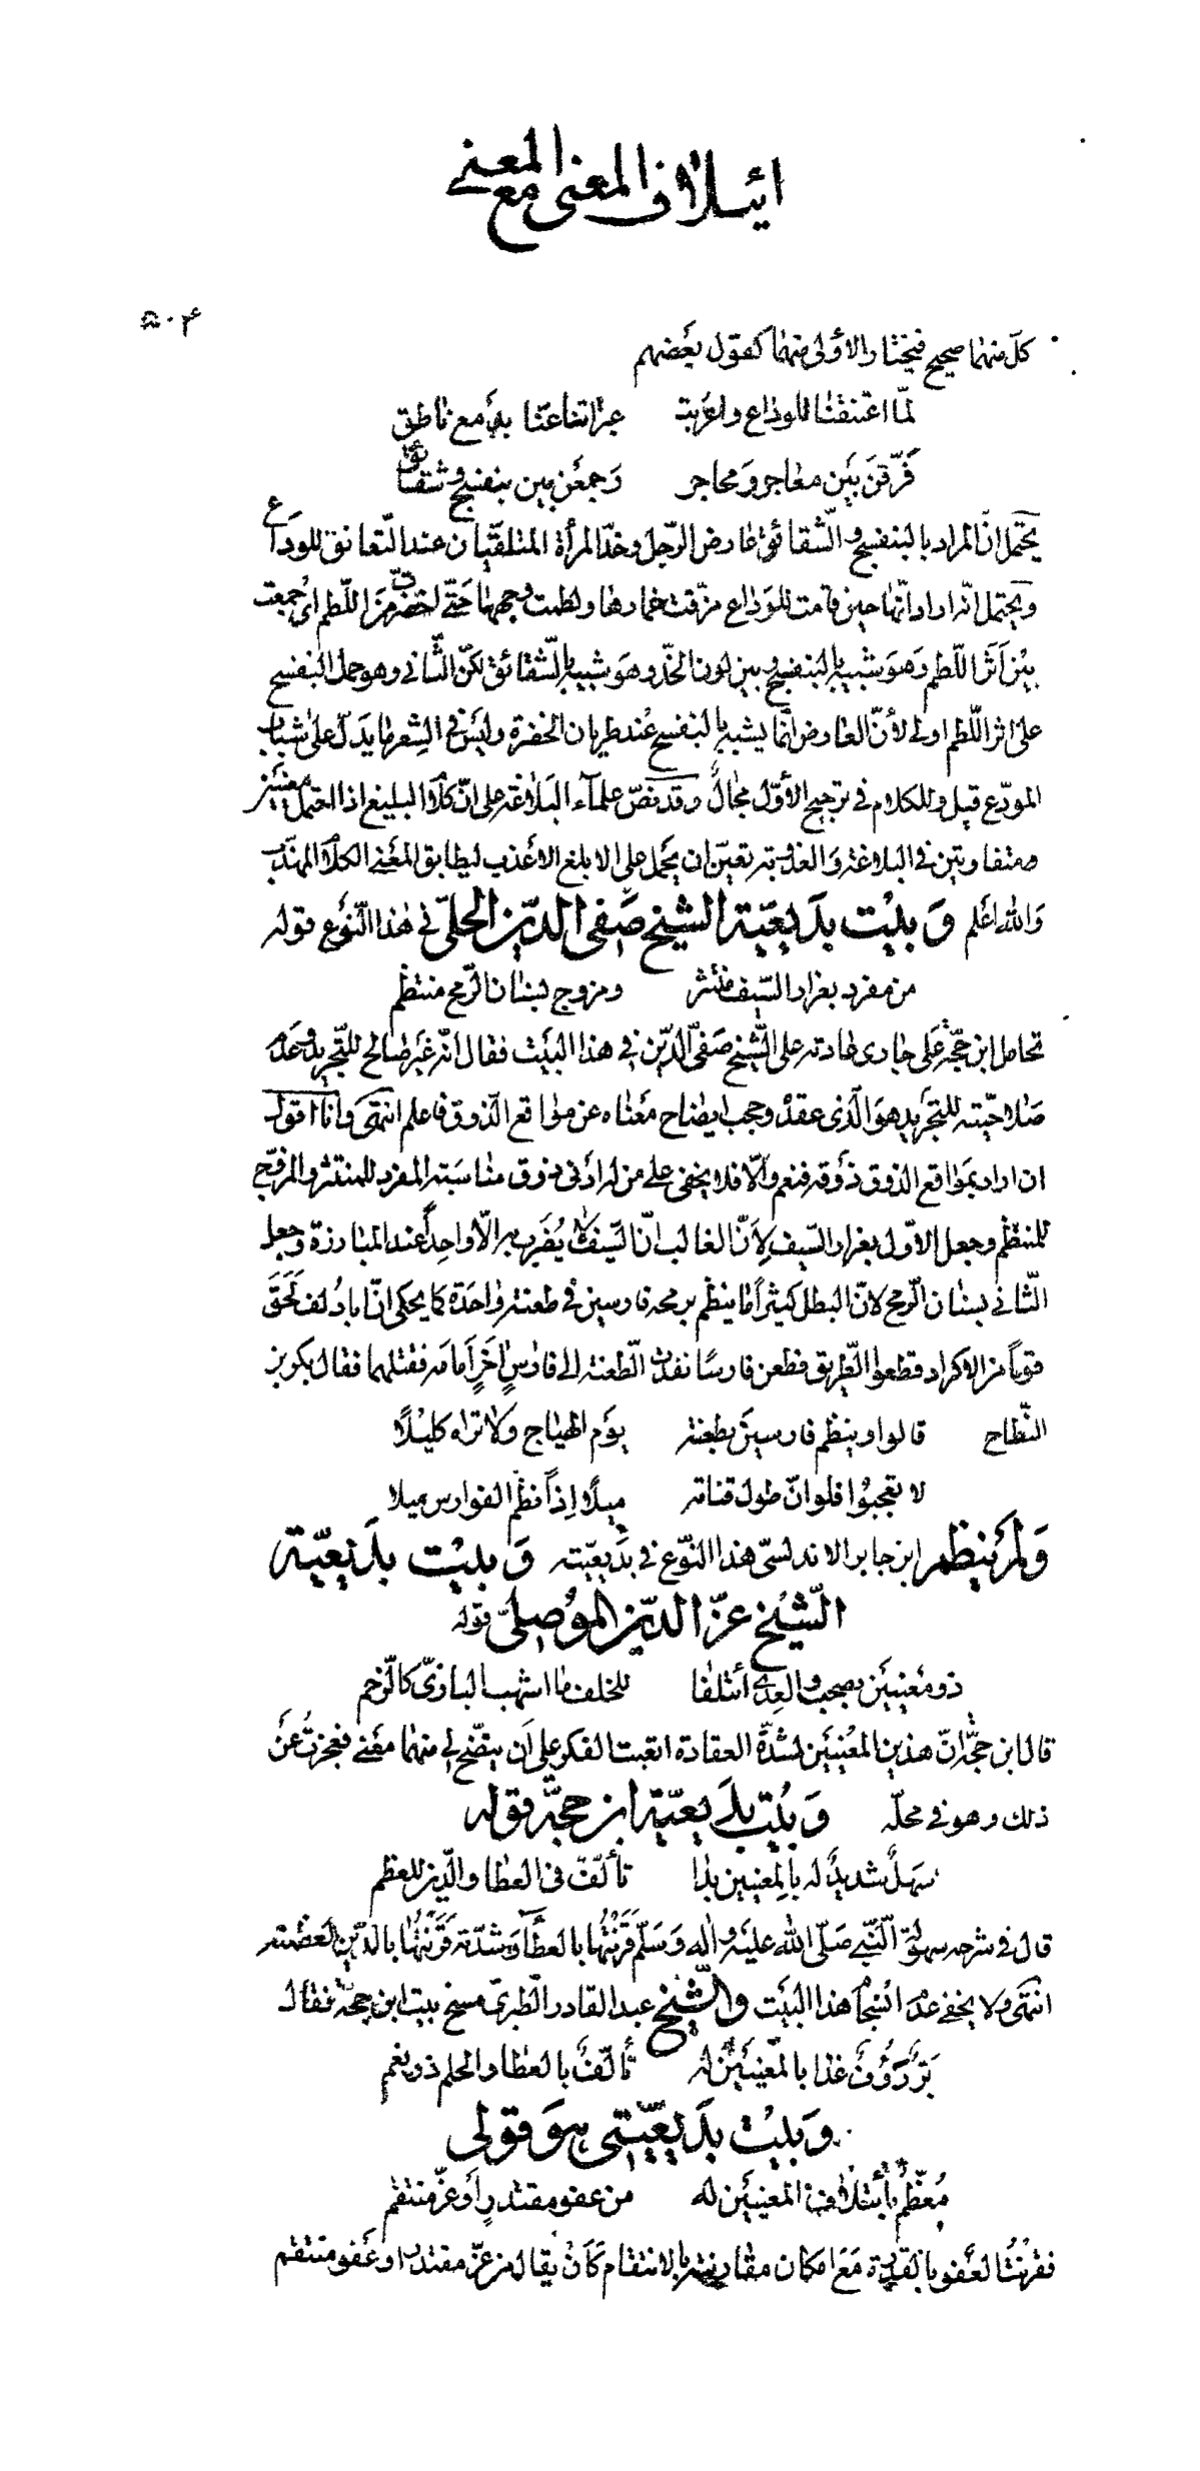 ائتلاف المعنى مع المعنى
۵۰۴
كلّ منهما صحيح فيختار الاولى منهما كقول بعضهم
لمّا اعتنقنا للوداع واعربت عبراتنا عنّا بدمع ناطق
فَرّقنَ بَين معاجر ومحاجر وَجمعن بين بنفسج وشقائق
يحتمل انّ المراد بالبنفسج والشّقائق عارض الرّجل وخدّ المرأة الملتقيان عند التّعانق للوداع
ويحتمل انّه اراد انّها حين قامت للوداع مزّقت خمارها ولطمت وجهها حتّى اخضرّ من اللّطم اى جمعت
بين اثر اللّطم وهو شبيه بالبنفسج وبين لون الخدّ وهو شبيه بالشّقائق لكنّ الثّانى وهو حمل البنفسج
على اثر اللّطم اولى لأنّ العارض انّما يشبه بالبنفسج عند طريان الخضرة وليس فى الشعر ما يدلّ على شباب
المودّع قيل وللكلام فى ترجيح الأوّل مجالٌ وقد نصّ علمآء البلاغة على انّ كلام البليغ اذا احتمل معنيين
متفاوتين فى البلاغة والعذوبة تعيّن ان يحمل على الابلغ الاعذب ليطابق المعنى الكلام المهذّب
والله اعلم وَبيْت بدَيعيّة الشيخ صَفى الدّين الحلّى فى هذا النّوع قوله
من مفرد بغرار السّيف منتثر ومزوج بسنان الرّمح منتظم
تحامل ابن حجّة عَلى جارى عادته على الشّيخ صفىّ الدّين فى هذا البيت فقال انّه غير صالح للتّجريد وعدم
صَلاحيّته للتجريد هو الّذى عقده وحجب ايضاح معناه عن مواقع الذوق فاعلم انتهى وانا اقول
ان اراد بمواقع الذوق ذَوقه فنعم والّا فلا يخفى على من له ادنى ذوق مناسبة المفرد للمنتثر والمزوج
للمنتظم وجعل الاوّل بغرار السّيف لِاَنّ الغالب انّ السّيف لا يُضرب به الّا واحداً عند المبارزة وجعل
الثّانى بسنان الرّمح لانّ البطل كثيراً ما ينظم برمحه فارسين فى طعنة واحدة كما يحكى انّ ابا دُلف لَحَقَ
قوماً من الاكراد قطعوا الطّريق فطعن فارسًا نفذت الطّعنة الى فارسٍ اخر امامه فقتلهما فقال بكر بن
النّطاح قالوا وينظم فارسين بطعنة يوَم الهياج ولا تراه كليْلًا
لا تعجبُوا فلو انّ طول قناته ميلًا اِذاً نظم الفوارس ميلا
وَلم يَنظِم ابن جابر الاندلسىّ هذا النّوع فى بديعيّته وَبيْت بدَيعيّة
الشّيْخ عزّ الدّين الموْصلىّ قوله
ذو معنيَين بصحب والعِدى ائتلفا للخلف ما اشهب البازىّ كالرّخم
قال ابن حجّة انّ هذين المعنيَين لشدّة العقادة اتعبت الفكر على اَن يتضّح لى منهما معنى فعجزتُ عَن
ذلك وهو فى محلّه وَبَيْت بدَيعيّة ابن حجّة قوله
سَهلٌ شديدٌ له بالمعنيين بدا تألّفٌ فى العطا والدّين للعظم
قال فى شرحه سهولة النّبى صَلّى الله عليه واله وَسَلّم قرنتُها بالعطآ وشدّته قرنتُها بالدّين لعظمته
انتهى ولا يخفى عدم انسجام هذا البيت والشّيْخ عبد القادر الطّبرىّ مسخ بيت ابن حجّة فقال
بَرٌّ رَؤُفٌ غدا بالمعنيَين له تألّفٌ بالعطا والحلم ذو نعم
وَبيْت بدَيعيّتى هوَ قولى
مُعظّمٌ بأئتلاف المعنيَين له من عفو مقتدرٍ اَو عزّ منتقم
فقرنتُ العفو بالقدرة مَعَ امكان مقارنته بالانتقام كَاَنْ يقال من عزّ مقتدر او عَفو منتقم